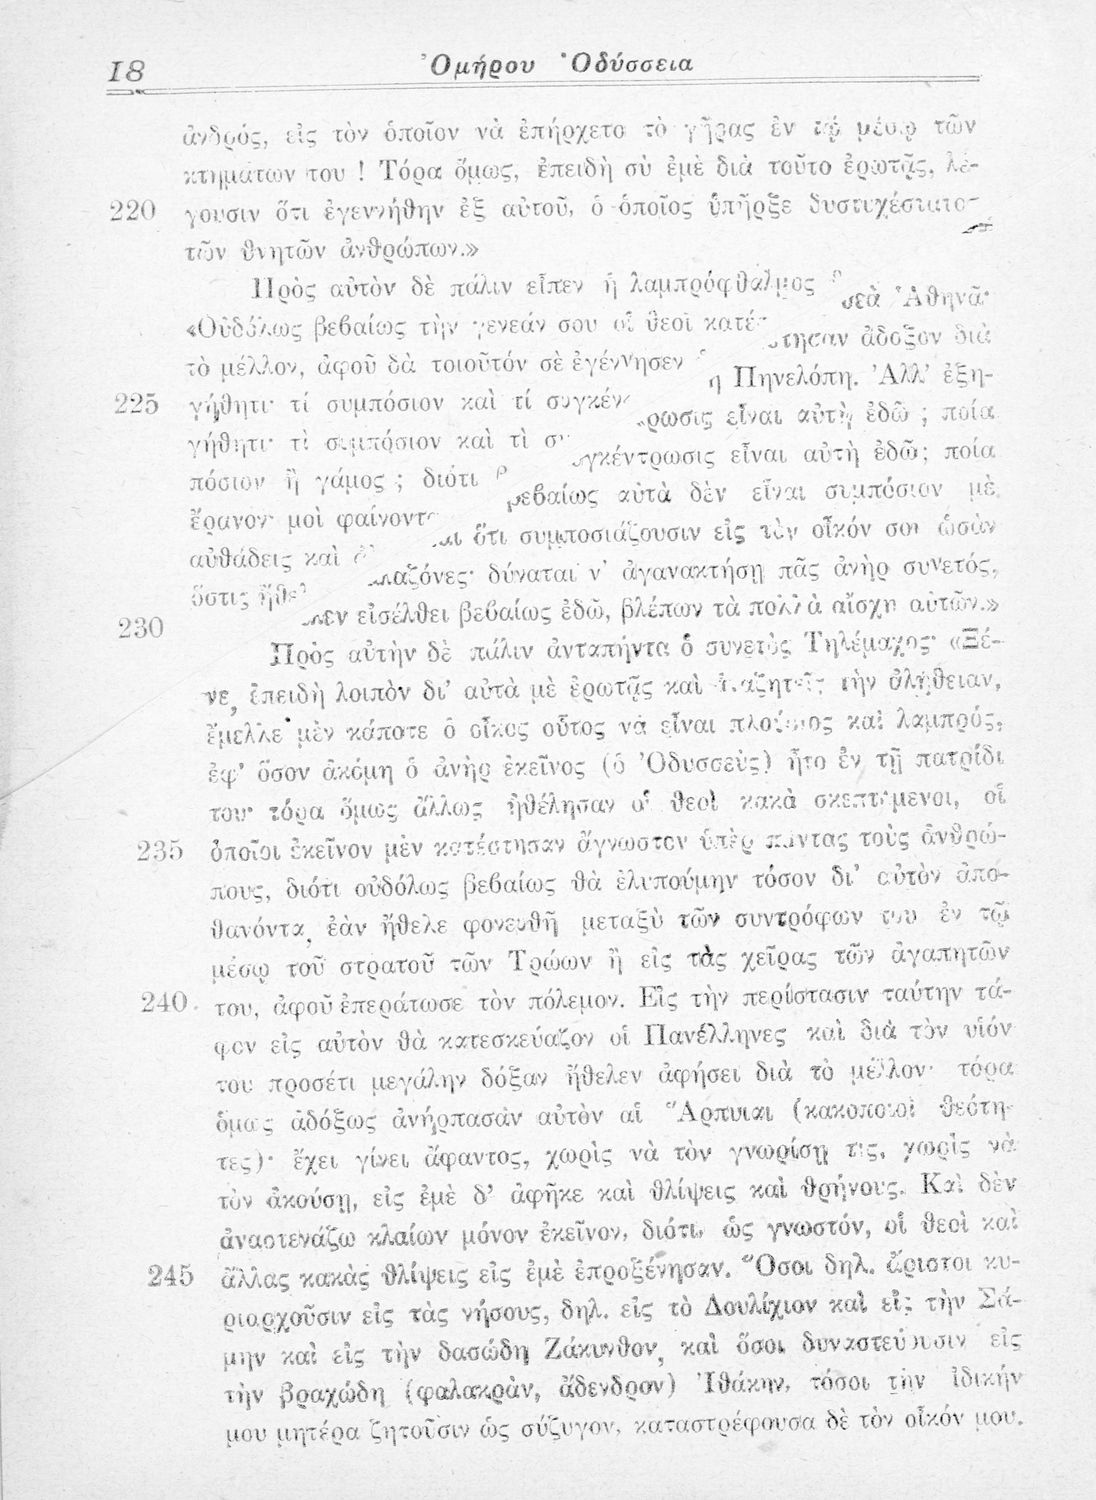 18 Ὁμήρου Ὀδύσσεια
ἀνδρός, εἰς τὸν ὁποῖον νὰ ἐπήρχετο τὸ γῆρας ἐν τῷ μέσῳ τῶν
κτημάτων του ! Τόρα ὅμως, ἐπειδὴ σὺ ἐμὲ διὰ τοῦτο ἐρωτᾷς, λέ-
220 γουσιν ὅτι ἐγεννήθην ἐξ αὐτοῦ, ὁ ὁποῖος ὑπῆρξε δυστυχέστατος
τῶν θνητῶν ἀνθρώπων.»
Πρὸς αὐτὸν δὲ πάλιν εἶπεν ἡ λαμπρόφθαλμος θεὰ Ἀθηνᾶ·
«Οὐδόλως βεβαίως τὴν γενεάν σου οἱ θεοὶ κατέστησαν ἄδοξον διὰ
τὸ μέλλον, ἀφοῦ δὰ τοιοῦτόν σὲ ἐγέννησεν ἡ Πηνελόπη. Ἀλλ' ἐξη-
225 γήθητι· τί συμπόσιον καὶ τί συγκέντρωσις εἶναι αὐτὴ ἐδῶ ; ποία
γήθητι· τὶ συμπόσιον καὶ τὶ συγκέντρωσις εἶναι αὐτὴ ἐδῶ; ποία
πόσιον ἢ γάμος ; διότι βεβαίως αὐτὰ δὲν εἶναι συμπόσιον μὲ
ἔρανον· μοὶ φαίνονται ὅτι συμποσιάζουσιν εἰς τὸν οἶκόν σου ὡσὰν
αὐθάδεις καὶ ἀλαζόνες· δύναται ν' ἀγανακτήσῃ πᾶς ἀνὴρ συνετός,
230 ὅστις ἤθελεν εἰσέλθει βεβαίως ἐδῶ, βλέπων τὰ πολλὰ αἴσχη αὐτῶν.»
Πρὸς αὐτὴν δὲ πάλιν ἀνταπήντα ὁ συνετὸς Τηλέμαχος· «Ξέ-
νε, ἐπειδὴ λοιπὸν δι' αὐτὰ μὲ ἐρωτᾷς καὶ ἀναζητεῖς τὴν ἀλήθειαν,
ἔμελλε μὲν κάποτε ὁ οἶκος οὗτος νὰ εἶναι πλούσιος καὶ λαμπρός,
ἐφ' ὅσον ἀκόμη ὁ ἀνὴρ ἐκεῖνος (ὁ Ὀδυσσεὺς) ἦτο ἐν τῇ πατρίδι
του· τόρα ὅμως ἄλλως ἠθέλησαν οἱ θεοὶ κακὰ σκεπτόμενοι, οἱ
235 ὁποῖοι ἐκεῖνον μὲν κατέστησαν ἄγνωστον ὑπὲρ πάντας τοὺς ἀνθρώ-
πους, διότι οὐδόλως βεβαίως θὰ ἐλυπούμην τόσον δι' αὐτὸν ἀπο-
θανόντα, ἐὰν ἤθελε φονευθῆ μεταξὺ τῶν συντρόφων του ἐν τῷ
μέσῳ τοῦ στρατοῦ τῶν Τρώων ἢ εἰς τὰς χεῖρας τῶν ἀγαπητῶν
240 του, ἀφοῦ ἐπεράτωσε τὸν πόλεμον. Εἰς τὴν περίστασιν ταύτην τά-
φον εἰς αὐτὸν θὰ κατεσκεύαζον οἱ Πανέλληνες καὶ διὰ τὸν υἱόν
του προσέτι μεγάλην δόξαν ἤθελεν ἀφήσει διὰ τὸ μέλλον· τόρα
ὅμως ἀδόξως ἀνήρπασαν αὐτὸν αἱ Ἅρπυιαι (κακοποιοὶ θεότη-
τες)· ἔχει γίνει ἄφαντος, χωρὶς νὰ τὸν γνωρίσῃ τις, χωρὶς νὰ
τὸν ἀκούσῃ, εἰς ἐμὲ δ' ἀφῆκε καὶ θλίψεις καὶ θρήνους. Καὶ δὲν
ἀναστενάζω κλαίων μόνον ἐκεῖνον, διότι, ὡς γνωστόν, οἱ θεοὶ καὶ
245 ἄλλας κακὰς θλίψεις εἰς ἐμὲ ἐπροξένησαν. Ὅσοι δηλ. ἄριστοι κυ-
ριαρχοῦσιν εἰς τὰς νήσους, δηλ. εἰς τὸ Δουλίχιον καὶ εἰς τὴν Σά-
μην καὶ εἰς τὴν δασώδη Ζάκυνθον, καὶ ὅσοι δυναστεύουσιν εἰς
τὴν βραχώδη (φαλακρὰν, ἄδενδρον) Ἰθάκην, τόσοι τὴν ἰδικήν
μου μητέρα ζητοῦσιν ὡς σύζυγον, καταστρέφουσα δὲ τὸν οἶκόν μου.